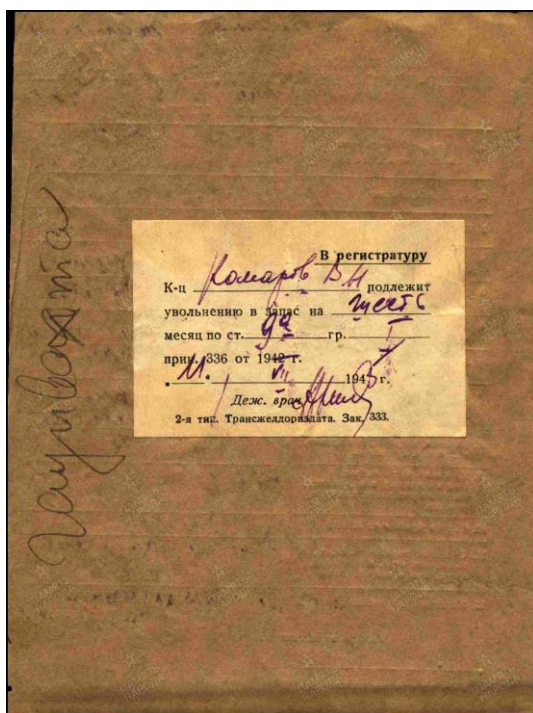 Гауптвахта
В регистратуру
К-ц Комаров В И подлежит
увольнению в запас на шесть
месяц по ст. 9а гр. I
прик. 336 от 1942 г.
"11" VII 1943 г.
Деж. врач
2-я тип. Трансжелдориздата. Зак. 333.